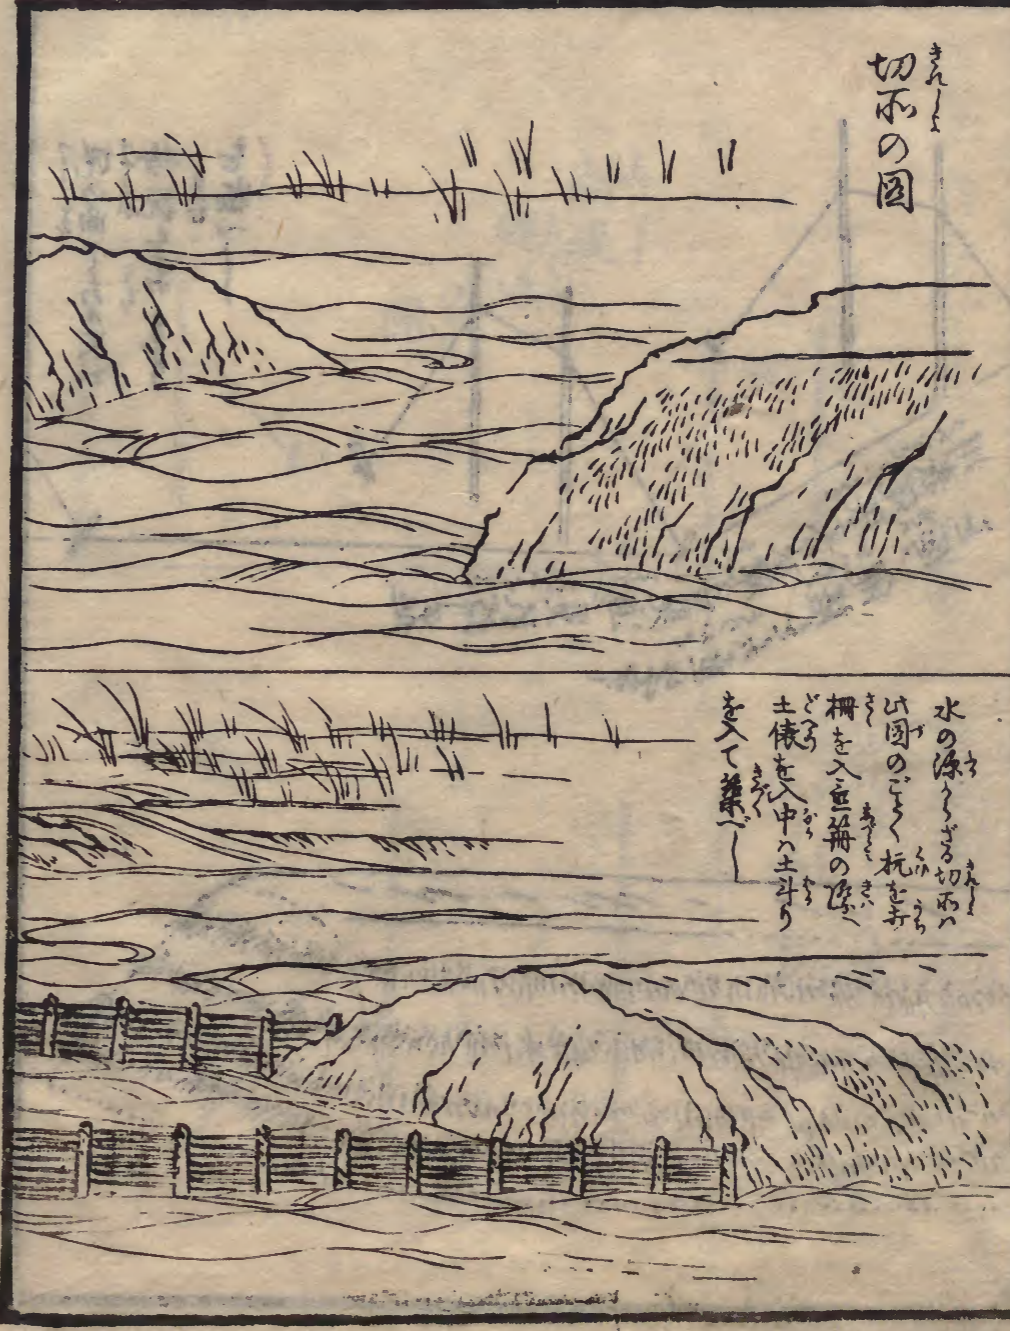 切所の図
きれしよ
水の深からざる切所ハ
此図のごとく杭を打
柵を入
の際へ
土俵を入中ハ土斗り
を入て築べし